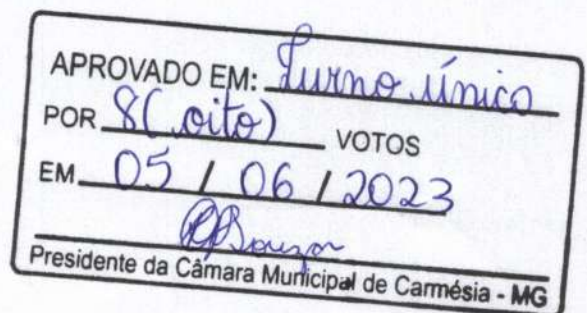 APROVADO EM: Turno único
POR 8 (oito) VOTOS
EM 05 / 06 / 2023
Presidente da Câmara Municipal de Carmésia - MG